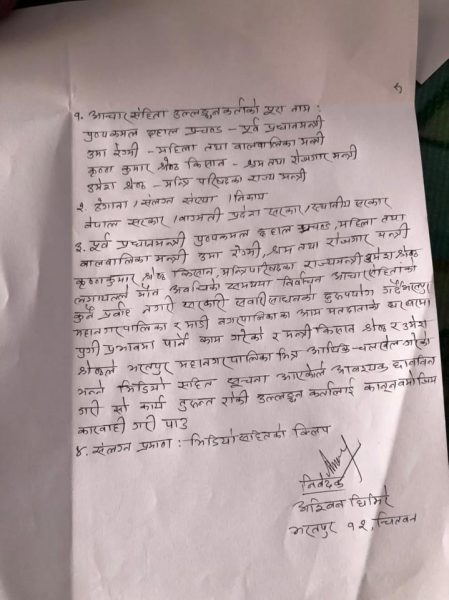 १. आचार संहिता उल्लङ्घनकर्ताको पुरा नाम :
पुष्पकमल दाहाल प्रचण्ड - पूर्व प्रधानमन्त्री
उमा रेग्मी - महिला तथा बालबालिका मन्त्री
कृष्ण कुमार श्रेष्ठ किसान - श्रम तथा रोजगार मन्त्री
उमेश श्रेष्ठ - मन्त्रि परिषदका राज्य मन्त्री
२. ठेगाना / संलग्न संस्था / निकाय
नेपाल सरकार / बाग्मती प्रदेश सरकार / स्थानीय सरकार
३. पूर्व प्रधानमन्त्री पुष्पकमल दाहाल प्रचण्ड, महिला तथा
बालबालिका मन्त्री उमा रेग्मी, श्रम तथा रोजगार मन्त्री
कृष्णकुमार श्रेष्ठ किसान, मन्त्रिपरिषदका राज्यमन्त्री उमेश श्रेष्ठ
लगायतले मौन अवधिको समयमा निर्वाचन आचारसंहिताको
कुनै प्रर्वाह नगरी सरकारी सवारीसाधनको दुरुपयोग गर्दै भरतपुर
महानगरपालिका र माडी नगरपालिकाका आम मतदाताको घरघरमा
पुगी प्रभावमा पार्ने काम गरेको र मन्त्री किसान श्रेष्ठ र उमेश
श्रेष्ठले भरतपुर महानगरपालिका भित्र आर्थिक चलखेल गरेको
भन्ने भिडियो सहित सूचना आएकोले आवश्यक छानविन
गरी सो कार्य तुरुन्त रोकी उल्लङ्घन कर्तालाई कानूनबमोजिम
कारवाही गरी पाउ
४. संलग्न प्रमाण : भिडियो सहितको क्लिप
निवेदक
अश्विन घिमिरे
भरतपुर १२, चितवन